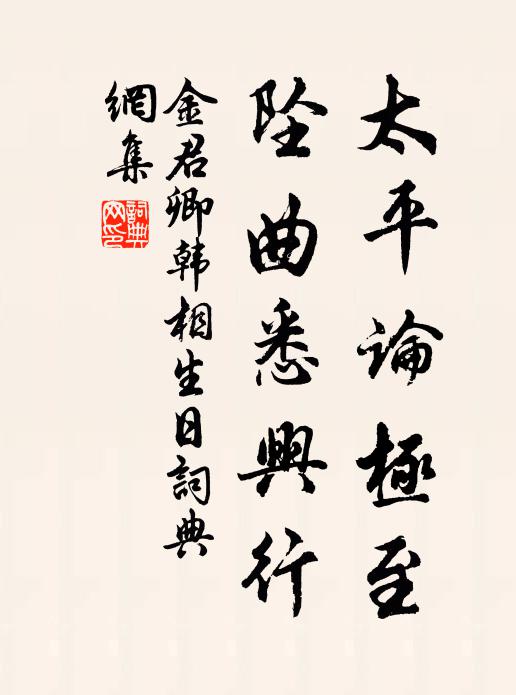 太平論極至
坠曲悉興行
金君卿韩相生日詞典
網集
詞典
网印